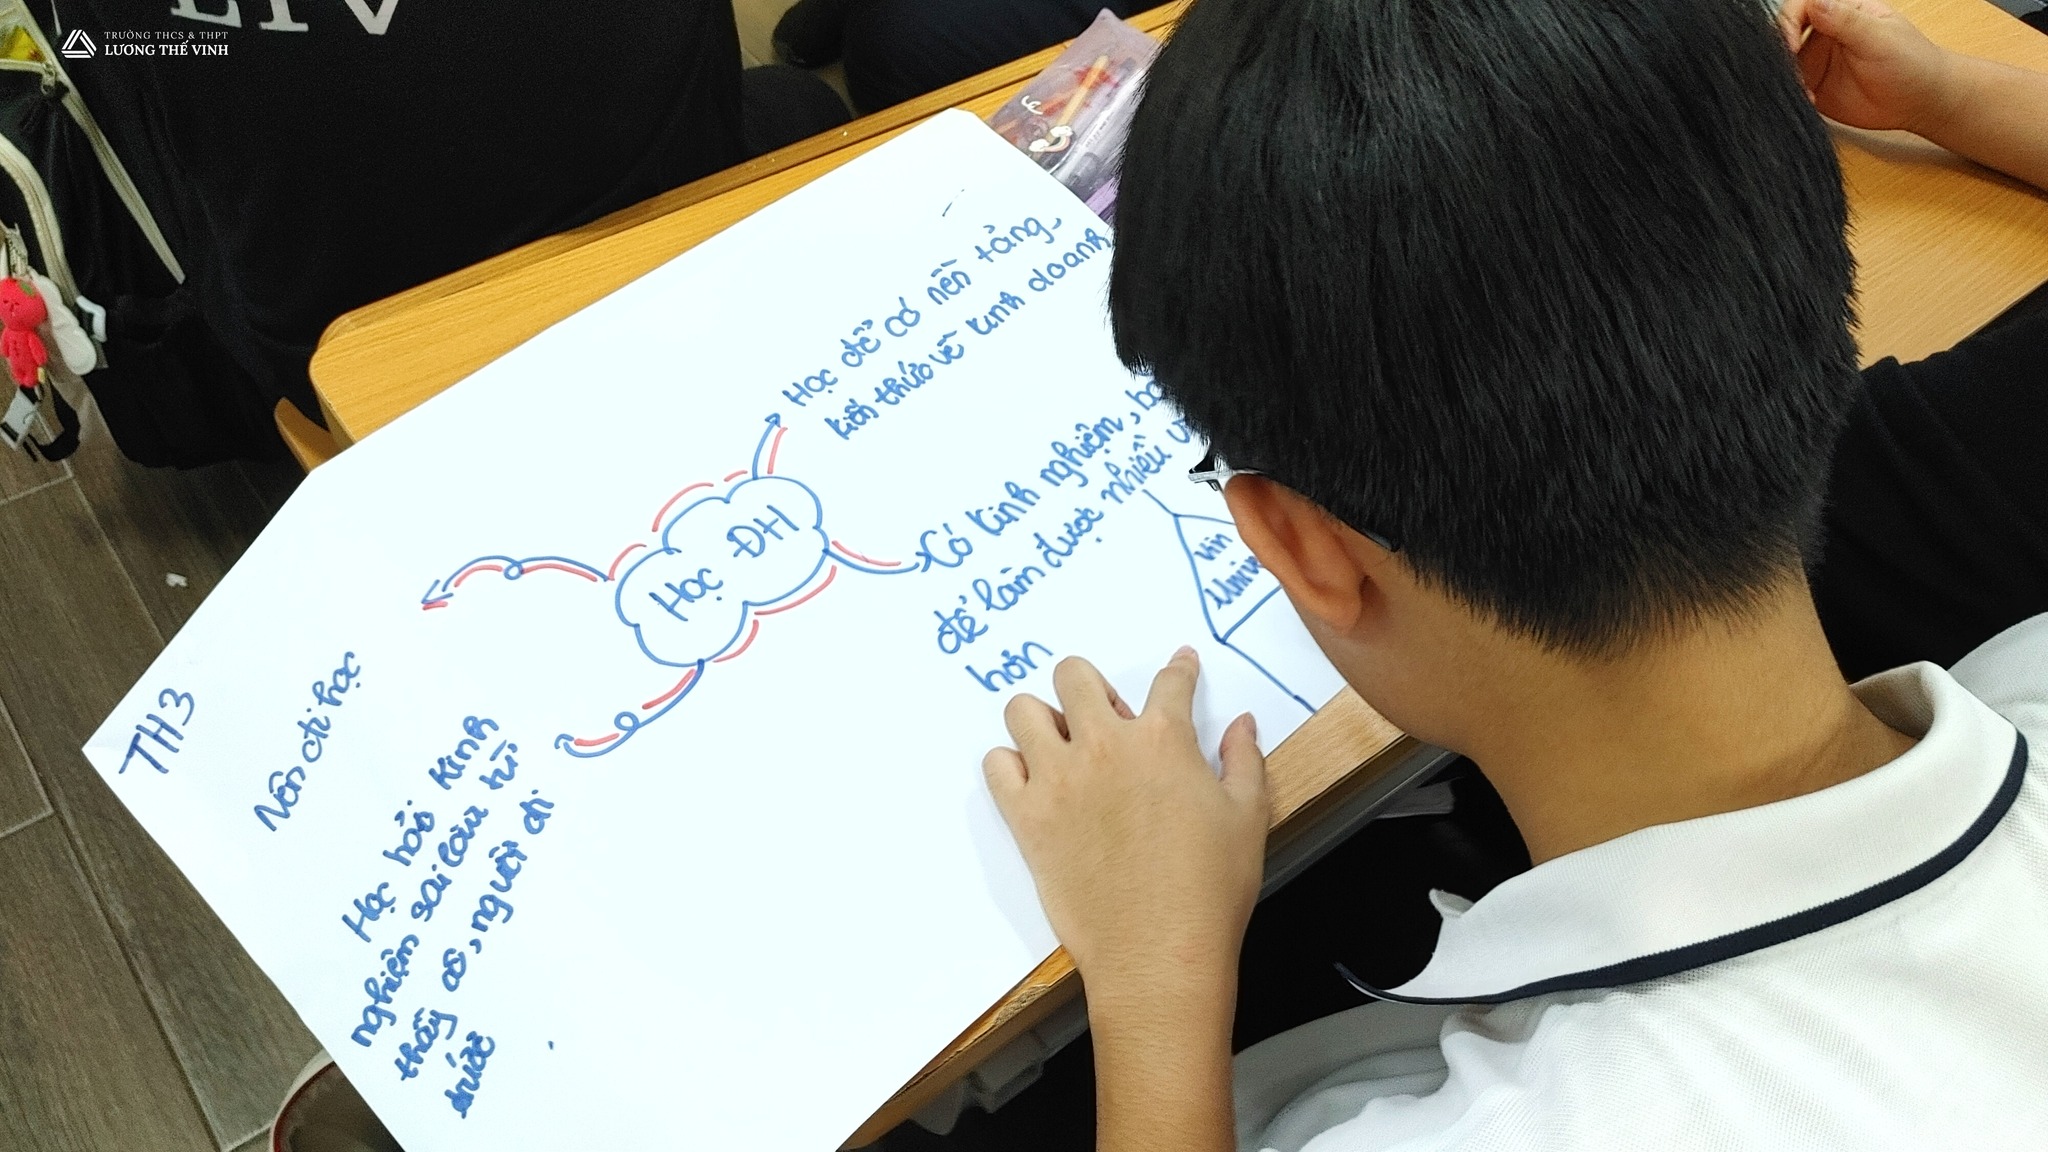 LIV
TRƯỜNG THCS & THPT
LƯƠNG THẾ VINH
TH3
Nên đi học
Học ĐH
Học để có nền tảng
kiến thức về kinh doanh
Có kinh nghiệm,
để làm được nhiều
hơn
Vin
Học hỏi kinh
nghiệm sai lầu từ
thầy cô, người đi
trước